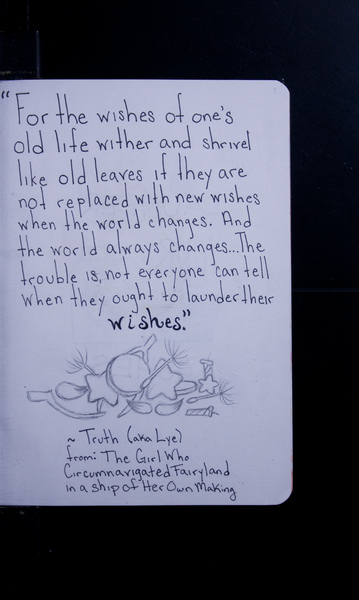 "For the wishes of one's
old life wither and shrivel
like old leaves if they are
not replaced with new wishes
when the world changes. And
the world always changes...The
trouble is, not everyone can tell
when they ought to launder their
wishes."
~ Truth (aka Lye)
from: The Girl Who
Circumnavigated Fairyland
in a ship of Her Own Making